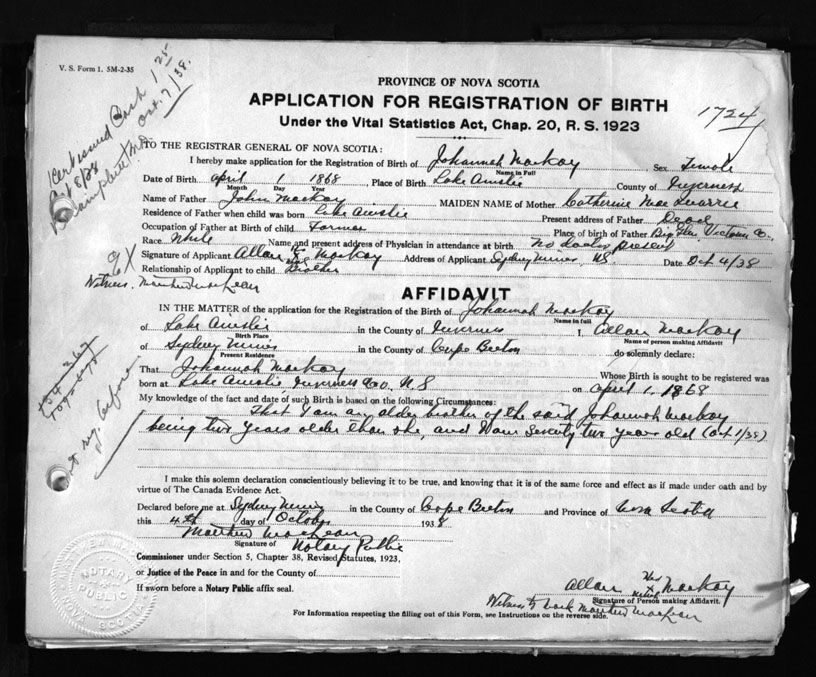 V. S. Form 1. 5M-2-35
PROVINCE OF NOVA SCOTIA
APPLICATION FOR REGISTRATION OF BIRTH
Under the Vital Statistics Act, Chap. 20, R. S. 1923
1724
Cert issued Cash 1 25
Oct. 7/38.
TO THE REGISTRAR GENERAL OF NOVA SCOTIA:
I hereby make application for the Registration of Birth of Johannah MacKay Sex Female
Name in Full
Date of Birth April 1 1868 Place of Birth Lake Ainslie County of Inverness
Month Day Year
Name of Father John MacKay MAIDEN NAME of Mother Catherine MacQuarrie
Residence of Father when child was born Lake Ainslie Present address of Father Dead
Occupation of Father at Birth of child Farmer Place of birth of Father Big Glen, Victoria Co.
Race White Name and present address of Physician in attendance at birth No doctor present
Signature of Applicant Allan his x mark MacKay Address of Applicant Sydney Mines, NS. Date Oct 4/38
Relationship of Applicant to child Brother
Witness. Matthew MacLean
AFFIDAVIT
IN THE MATTER of the application for the Registration of the Birth of Johannah MacKay
Name in full
of Lake Ainslie in the County of Inverness I, Allan MacKay
Birth Place, Name of person making Affidavit
of Sydney Mines in the County of Cape Breton do solemnly declare:
Present Residence
That Johannah MacKay Whose Birth is sought to be registered was
born at Lake Ainslie Inverness Co. N S on April 1, 1868
My knowledge of the fact and date of such Birth is based on the following Circumstances:
That I am an older brother of the said Johannah MacKay
being two years older than she, and I am seventy two year old (Oct 1/38)
not reg. before
I make this solemn declaration conscientiously believing it to be true, and knowing that it is of the same force and effect as if made under oath and by
virtue of The Canada Evidence Act.
Declared before me at Sydney Mines in the County of Cape Breton and Province of Nova Scotia
this 4th day of October 1938
Matthew MacLean
Signature of Notary Public
Commissioner under Section 5, Chapter 38, Revised Statutes, 1923,
or Justice of the Peace in and for the County of
If sworn before a Notary Public affix seal.
NOTARY PUBLIC
NOVA SCOTIA
Allan his x mark MacKay
Signature of Person making Affidavit.
Witness to mark Matthew MacLean
For Information respecting the filling out of this Form, see Instructions on the reverse side.